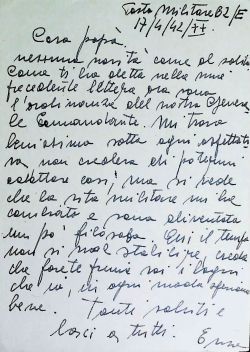 Posta Militare 82/E
17/4/42/XX.
Caro papà,
nessuna novità come al solito
Come ti ho detto nella mia
precedente lettera ora sono
l'ordinanza del nostro Genera
le Comandante. Mi trovo
benissimo sotto ogni aspetto
io non credevo di potermi
adattare così, ma si vede
che la vita militare mi ha
cambiato e sono diventato
un pò filosofo. Qui il tempo
non si vuol stabilire, credo
che forte
che io, di ogni modo
bene. Tanti saluti e
baci a tutti.